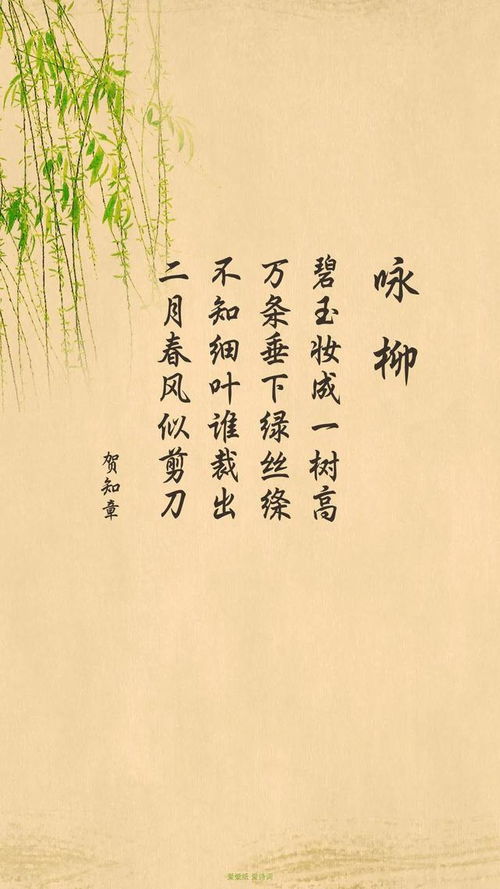 咏柳
碧玉妆成一树高
万条垂下绿丝绦
不知细叶谁裁出
二月春风似剪刀
贺知章
爱壁纸 爱诗词